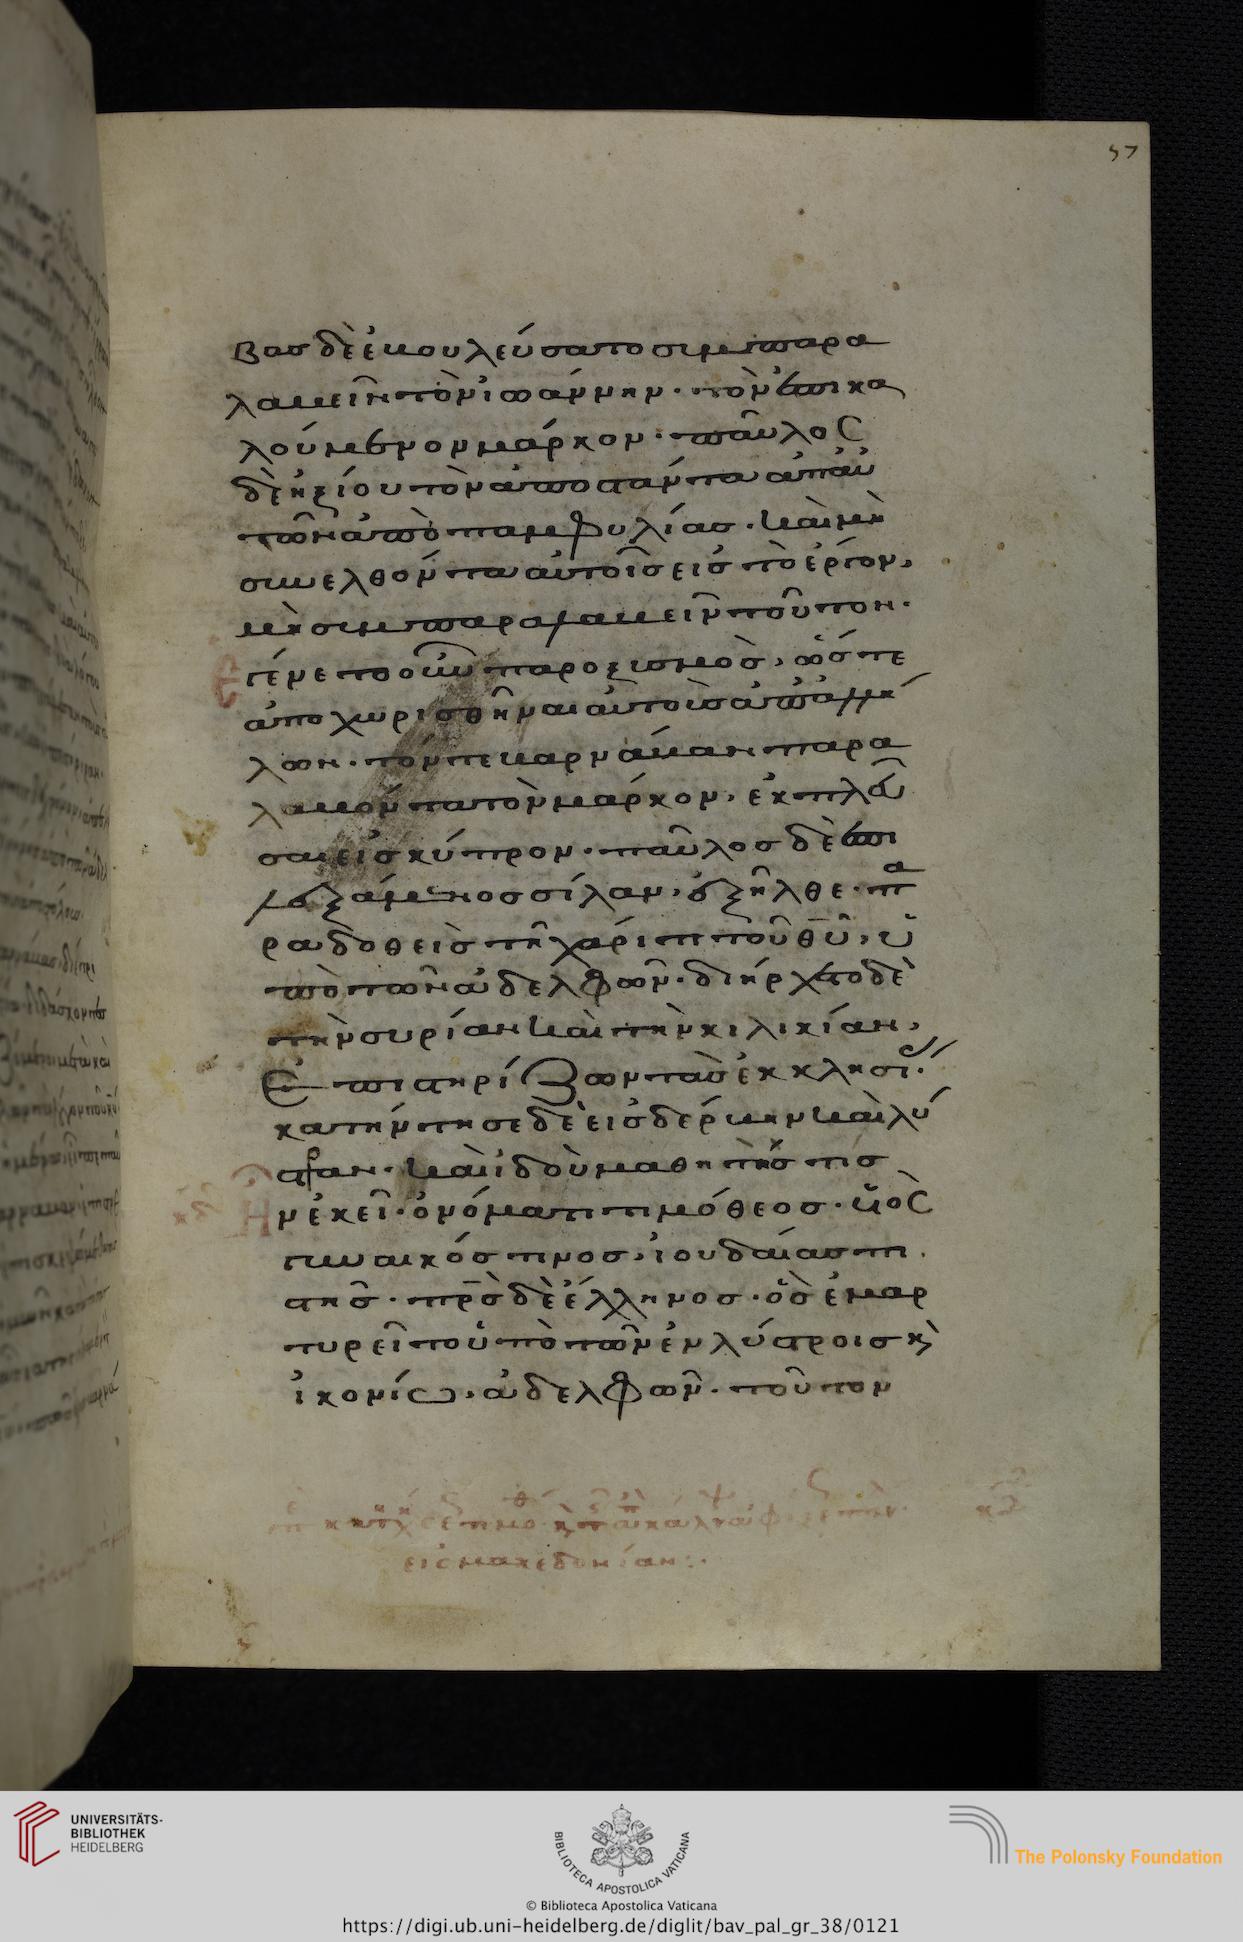 57
βασ δὲ ἐβουλεύσατο συμπαρα
λαβεῖν τὸν ἰωάννην · τὸν ἐπικα
λούμενον μάρκον · παῦλοσ
δὲ ἠξίου τὸν ἀποστάντα ἀπ αὐ
τῶν ἀπὸ παμφυλίασ · καὶ μὴ
συνελθόντα αὐτοῖσ εἰσ τὸ ἔργον,
μὴ συμπαραλαβεῖν τοῦτον ·
ἐγένετο οὖν παροξισμὸσ, ὥστε
ἀποχωρισθῆναι αὐτοὺσ ἀπ ἀλλή
λων · τόν τε βαρνάβαν παρα
λαβόντα τὸν μάρκον, ἐκπλεῦ
σαι εἰσ κύπρον · παῦλοσ δὲ ἐπι
λεξάμενοσ σίλαν, ἐξῆλθε · πα
ραδοθεὶσ τῆ χάριτι τοῦ θ̅υ̅, ὑ
πὸ τῶν ἀδελφῶν · διήρχετο δὲ
τὴν συρίαν καὶ τὴν κιλικίαν,
ἐπιστηρίζων τὰσ ἐκκλησί ·
κατήντησε δὲ εἰσ δέρβην καὶ λύ
στραν · καὶ ἰδοὺ μαθητήσ τισ
ἦν ἐκεῖ · ὀνόματι τιμόθεοσ · υἱὸσ
γυναικόσ τινοσ, ἰουδαίασ πι
στῆσ · πρ̅σ̅ δὲ ἕλληνοσ · ὃσ ἐμαρ
τυρεῖτο ὑπὸ τῶν ἐν λύστροισ κ
ἰκονίω, ἀδελφῶν · τοῦτον
εἰσ μακεδονίαν :·
UNIVERSITÄTS-
BIBLIOTHEK
HEIDELBERG
BIBLIOTECA APOSTOLICA VATICANA
The Polonsky Foundation
© Biblioteca Apostolica Vaticana
https://digi.ub.uni-heidelberg.de/diglit/bav_pal_gr_38/0121